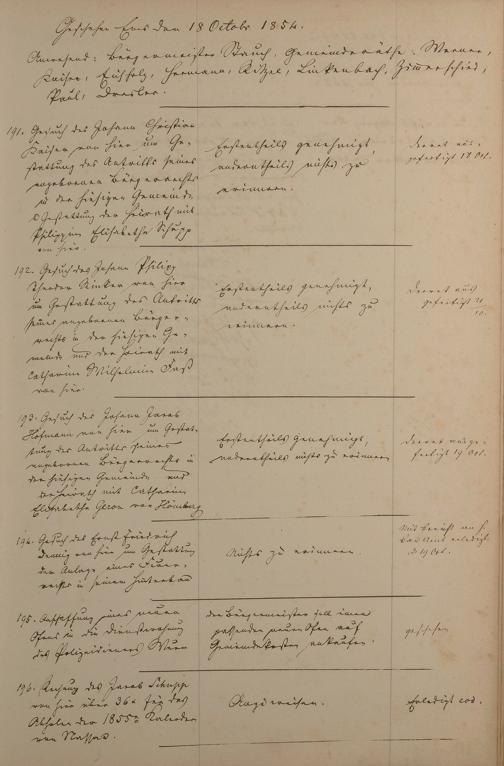 Geschehen Ems den 18 Octobr 1854.
Anwesend: Bürgermeister Stauch, Gemeinderäthe: Werner,
Kaiser, Eichholz, Hermann, Kitzel, Linkenbach, Zimmerschied,
Paul, Dresler.
191. Gesuch des Johann Christian
Kaiser von hier um Ge-
stattung des Antritts seines
angeborenen Bürgerrechts
in der hiesigen Gemeinde
& Gestattung der Heirath mit
Philippine Elisabethe Schupp
von hier.
Erstentheils genehmigt,
anderntheils nichts zu
erinnern.
Decret aus-
gefertigt 19 Oct.
192. Gesuch des Johann Philipp
Theodor von hier
um Gestattung des Antritts
seines angeborenen Bürger-
rechts in der hiesigen Ge-
meinde und der Heirath mit
Catharine Wilhelmine Faß
von hier.
Erstentheils genehmigt,
anderntheils nichts zu
erinnern.
Decret aus
gefertigt
193. Gesuch des Johann Jacob
Hofmann von hier um Gestat-
tung des Antritts seines
angeborenen Bürgerrechts in
der hiesigen Gemeinde und
der Heirath mit Catharine
Elisabethe von Homberg
Erstentheils genehmigt,
anderntheils nichts zu erinnern
Decret ausge-
fertigt 19 Oct.
194. Gesuch des Ernst Friedrich
von hier um Gestattung
der Anlage eines Feuer-
rechts in seinem Hinterbau
Nichts zu erinnern.
Mit Bericht an H.
erledigt
d 19 Oct.
195. Anschaffung eines neuen
Ofens in die Dienstwohnung
des Polizeidieners
der Bürgermeister soll einen
passenden neuen Ofen auf
Gemeindekosten ankaufen.
geschehen
196. Rechnung des Jacob Schupp
von hier über 36x für das
Abholen der 1855r Kalender
von Nassau.
Anzuweisen.
Erledigt eod.